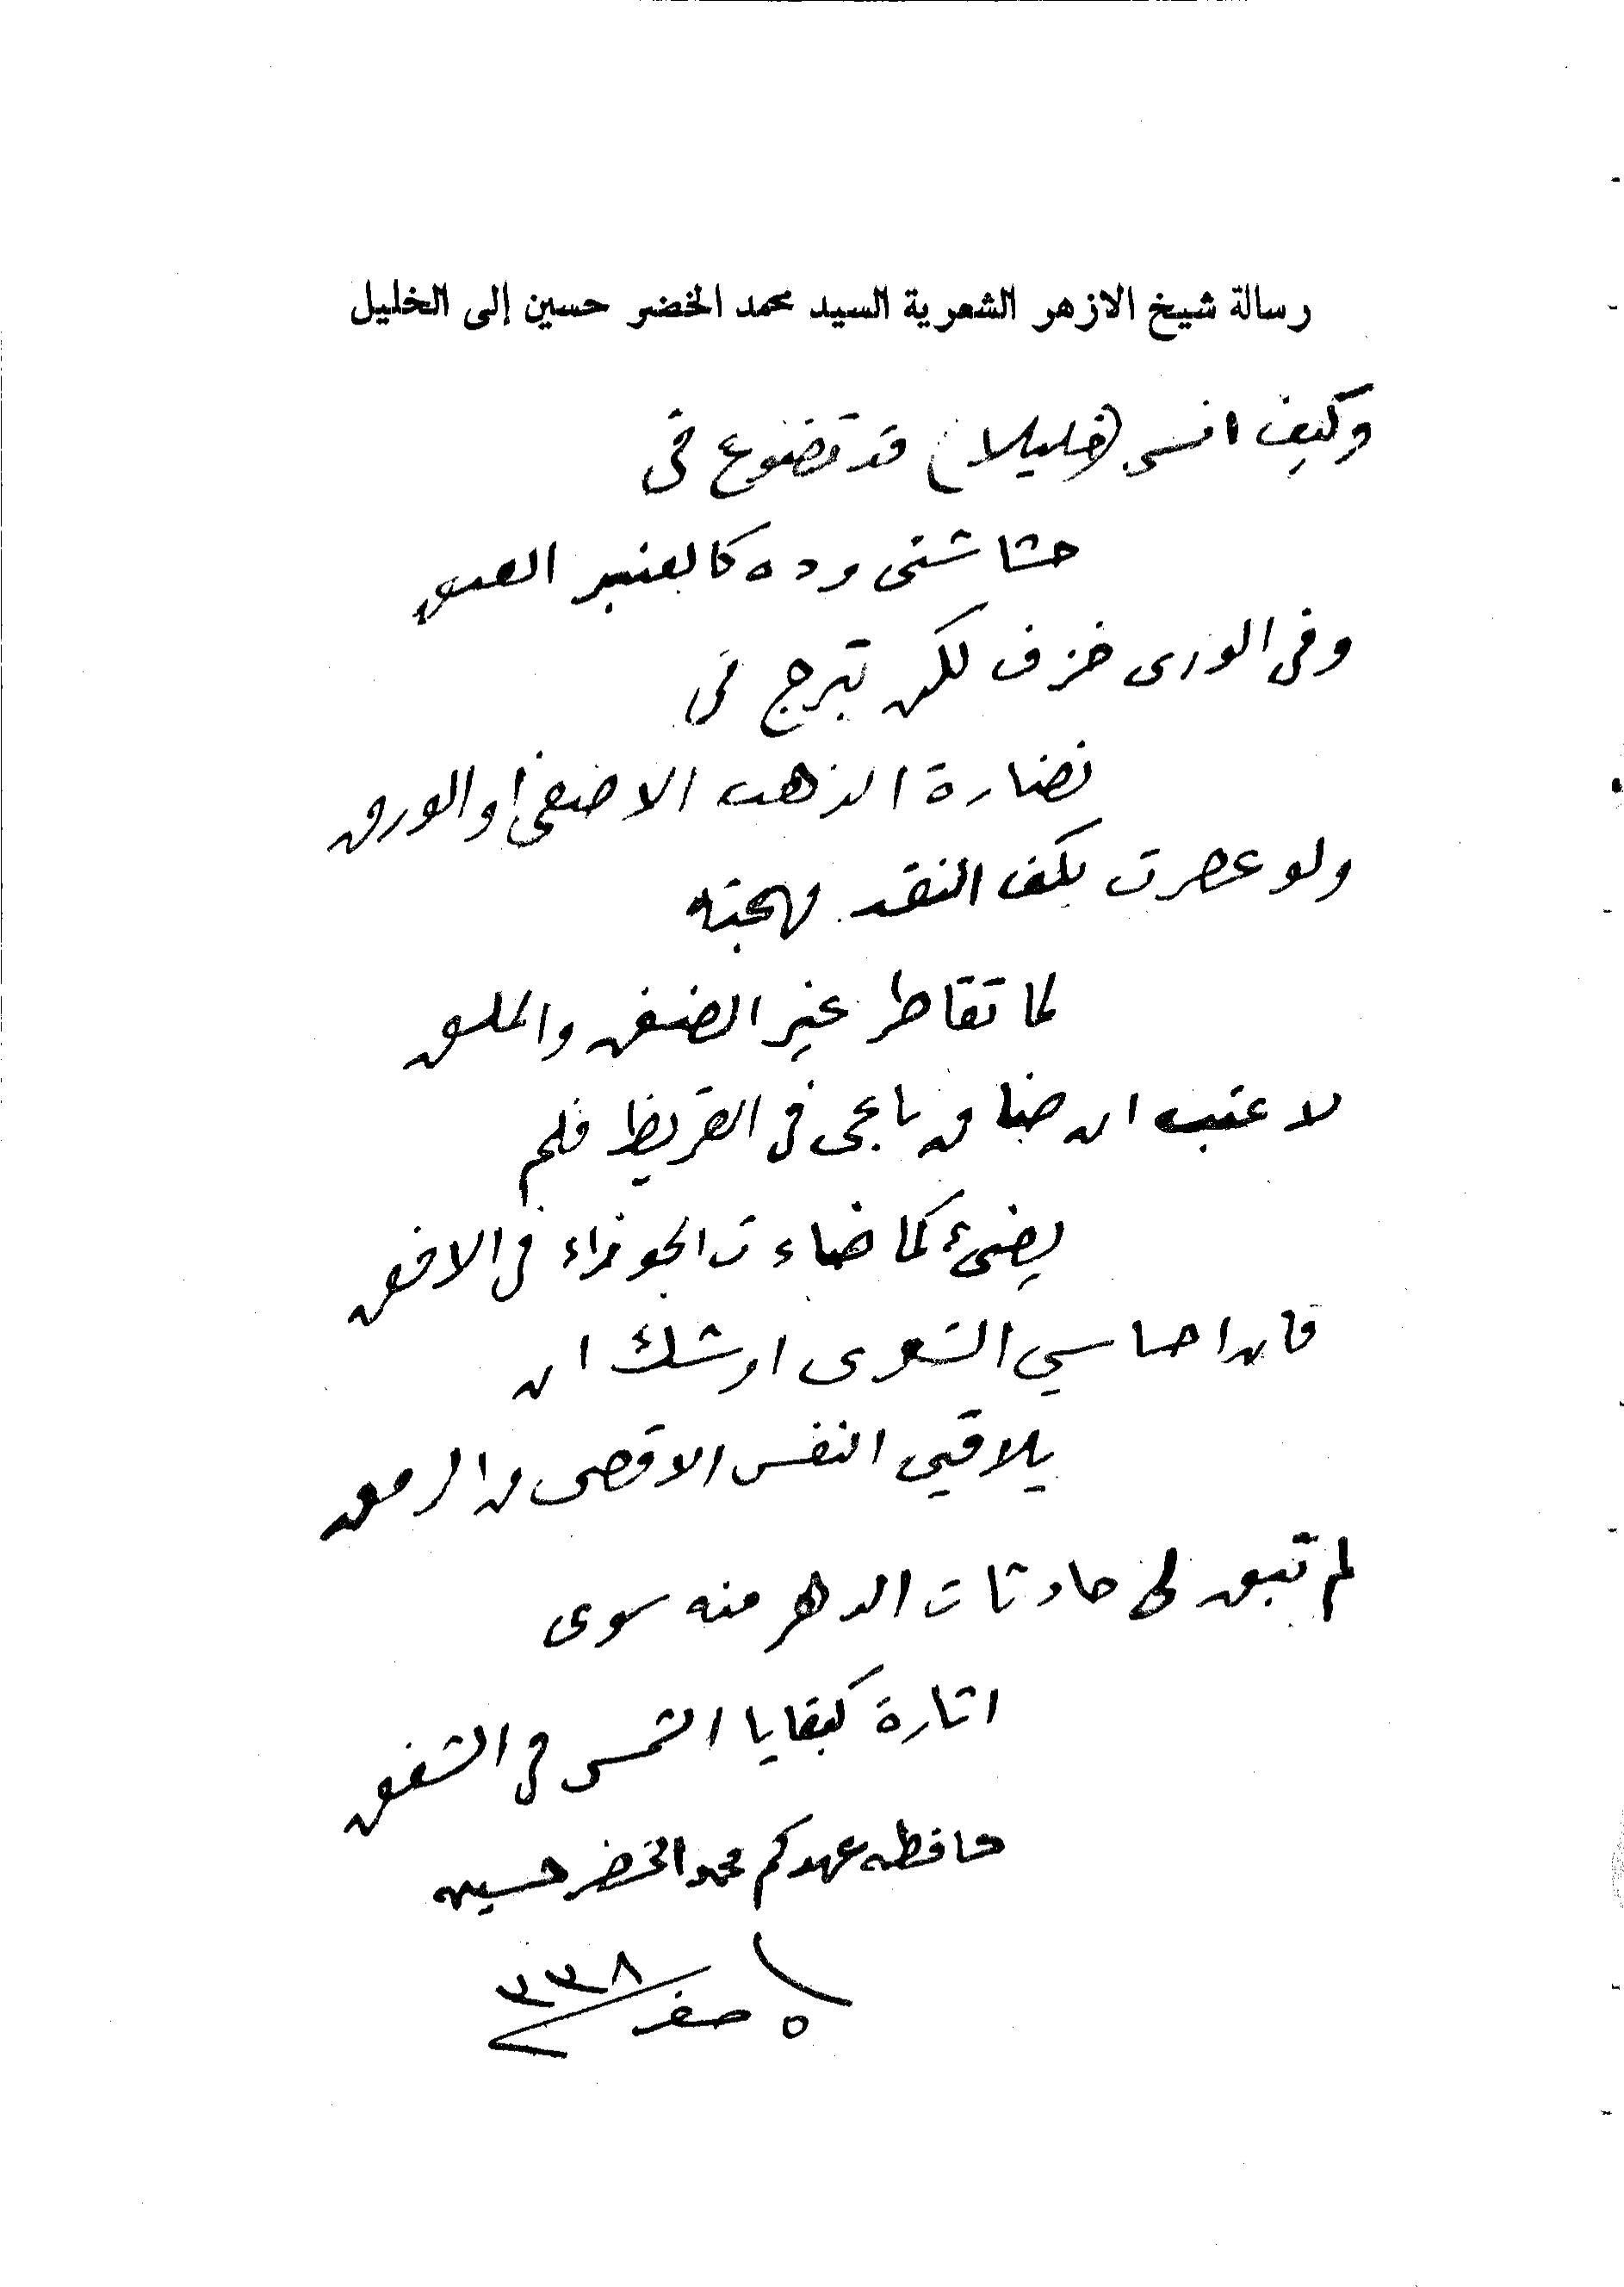 رسالة شيخ الازهر الشعرية السيد محمد الخضر حسين إلى الخليل
وكيف انسى (خليلا) قد تضوع في
حشاشتي وده كالعنبر العبق
وفي الورى خزف لكن تبرج في
نضارة الذهب الاصفى او الورق
ولو عصرت بكف النقد مهجته
لما تقاطر غير الضغن والملق
لا عتب ان ضاق باعي في القريظ فلم
يضئ كما ضاءت الجوزاء في الافق
فان احساسي الشعرى اوشك ان
يلاقي النفس الاقصى من الرمق
لم تبق لي حادثات الدهر منه سوى
اثارة كبقايا الشمس في الشفق
حافظ عهدكم محمد الخضر حسين
٥ صفر ٣٣٨